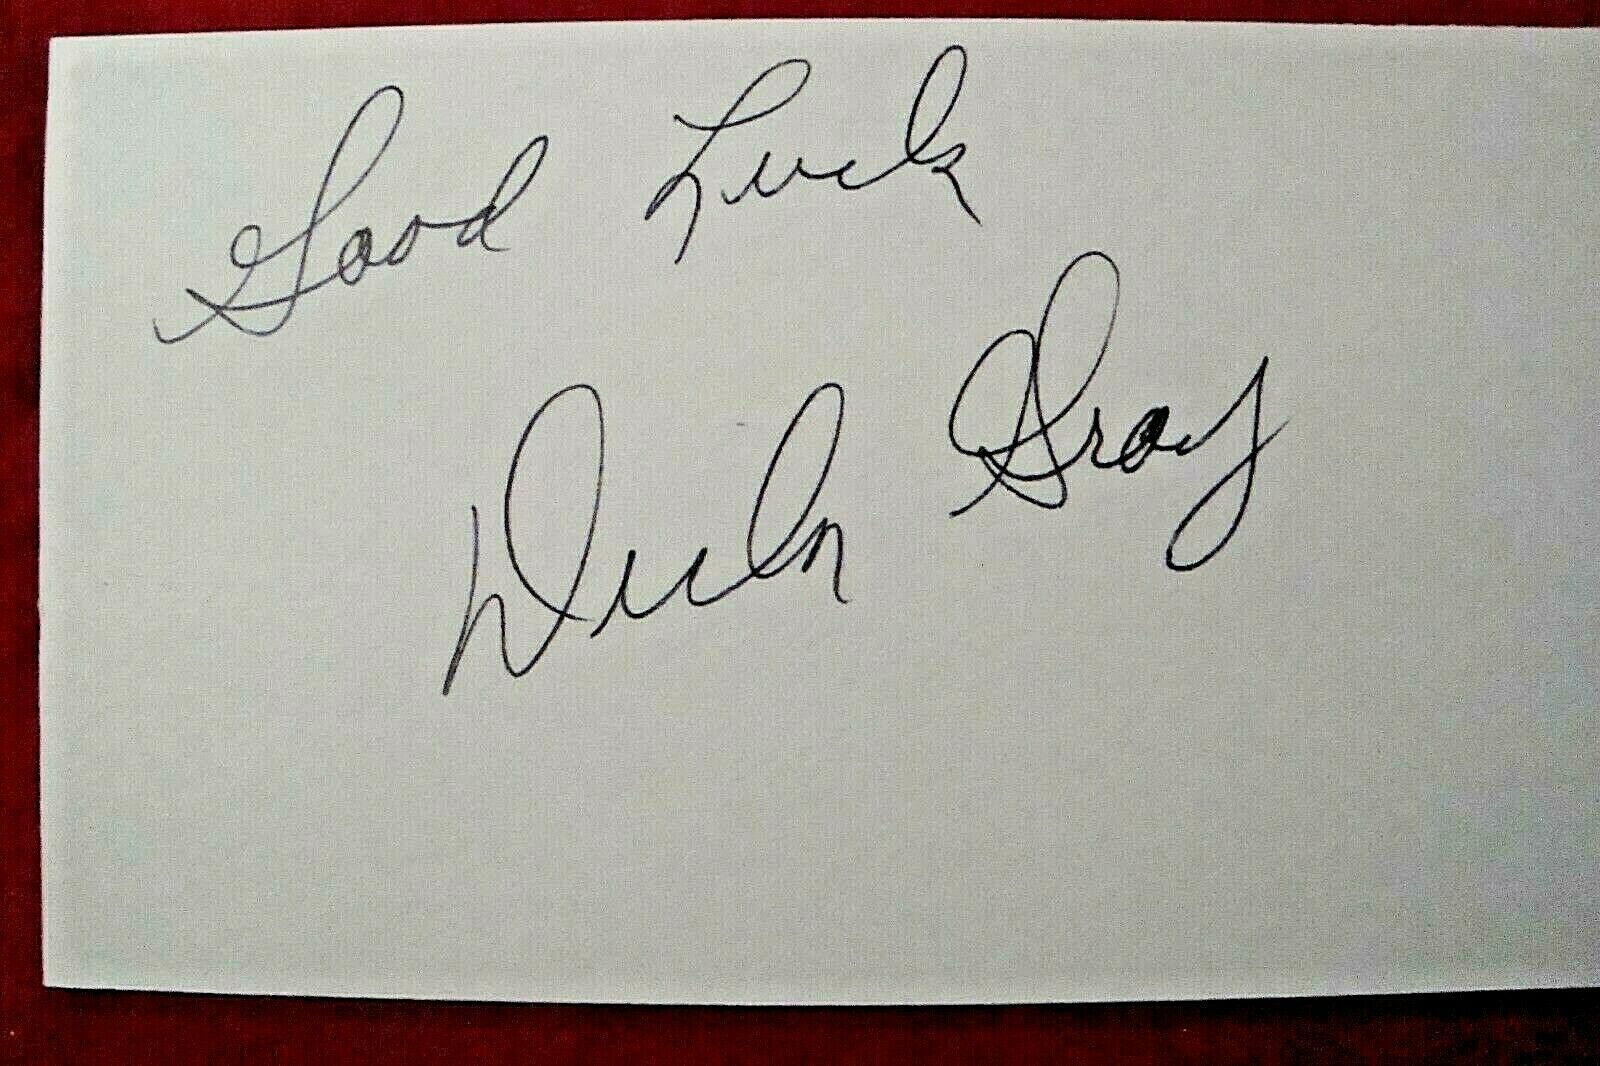 Good Luck
Dick Gray